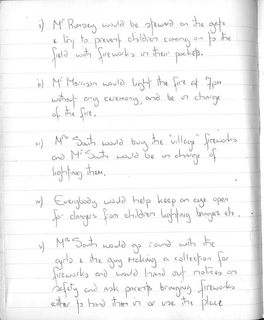 i) Mr Rumsey would be steward on the gate
& try to prevent children coming on to the
field with fireworks in their pockets.
ii) Mr Morrison would light the fire at 7pm
without any ceremony, and be in charge
of the fire.
iii) Mrs South would buy the "village" fireworks
and Mr South would be in charge of
lighting them.
iv) Everybody would help keep an eye open
for dangers from children lighting bangers etc.
v) Mrs South would go round with the
girls & the guy making a collection for
fireworks and would hand out notices on
safety and ask parents bringing fireworks
either to hand them in or use the place